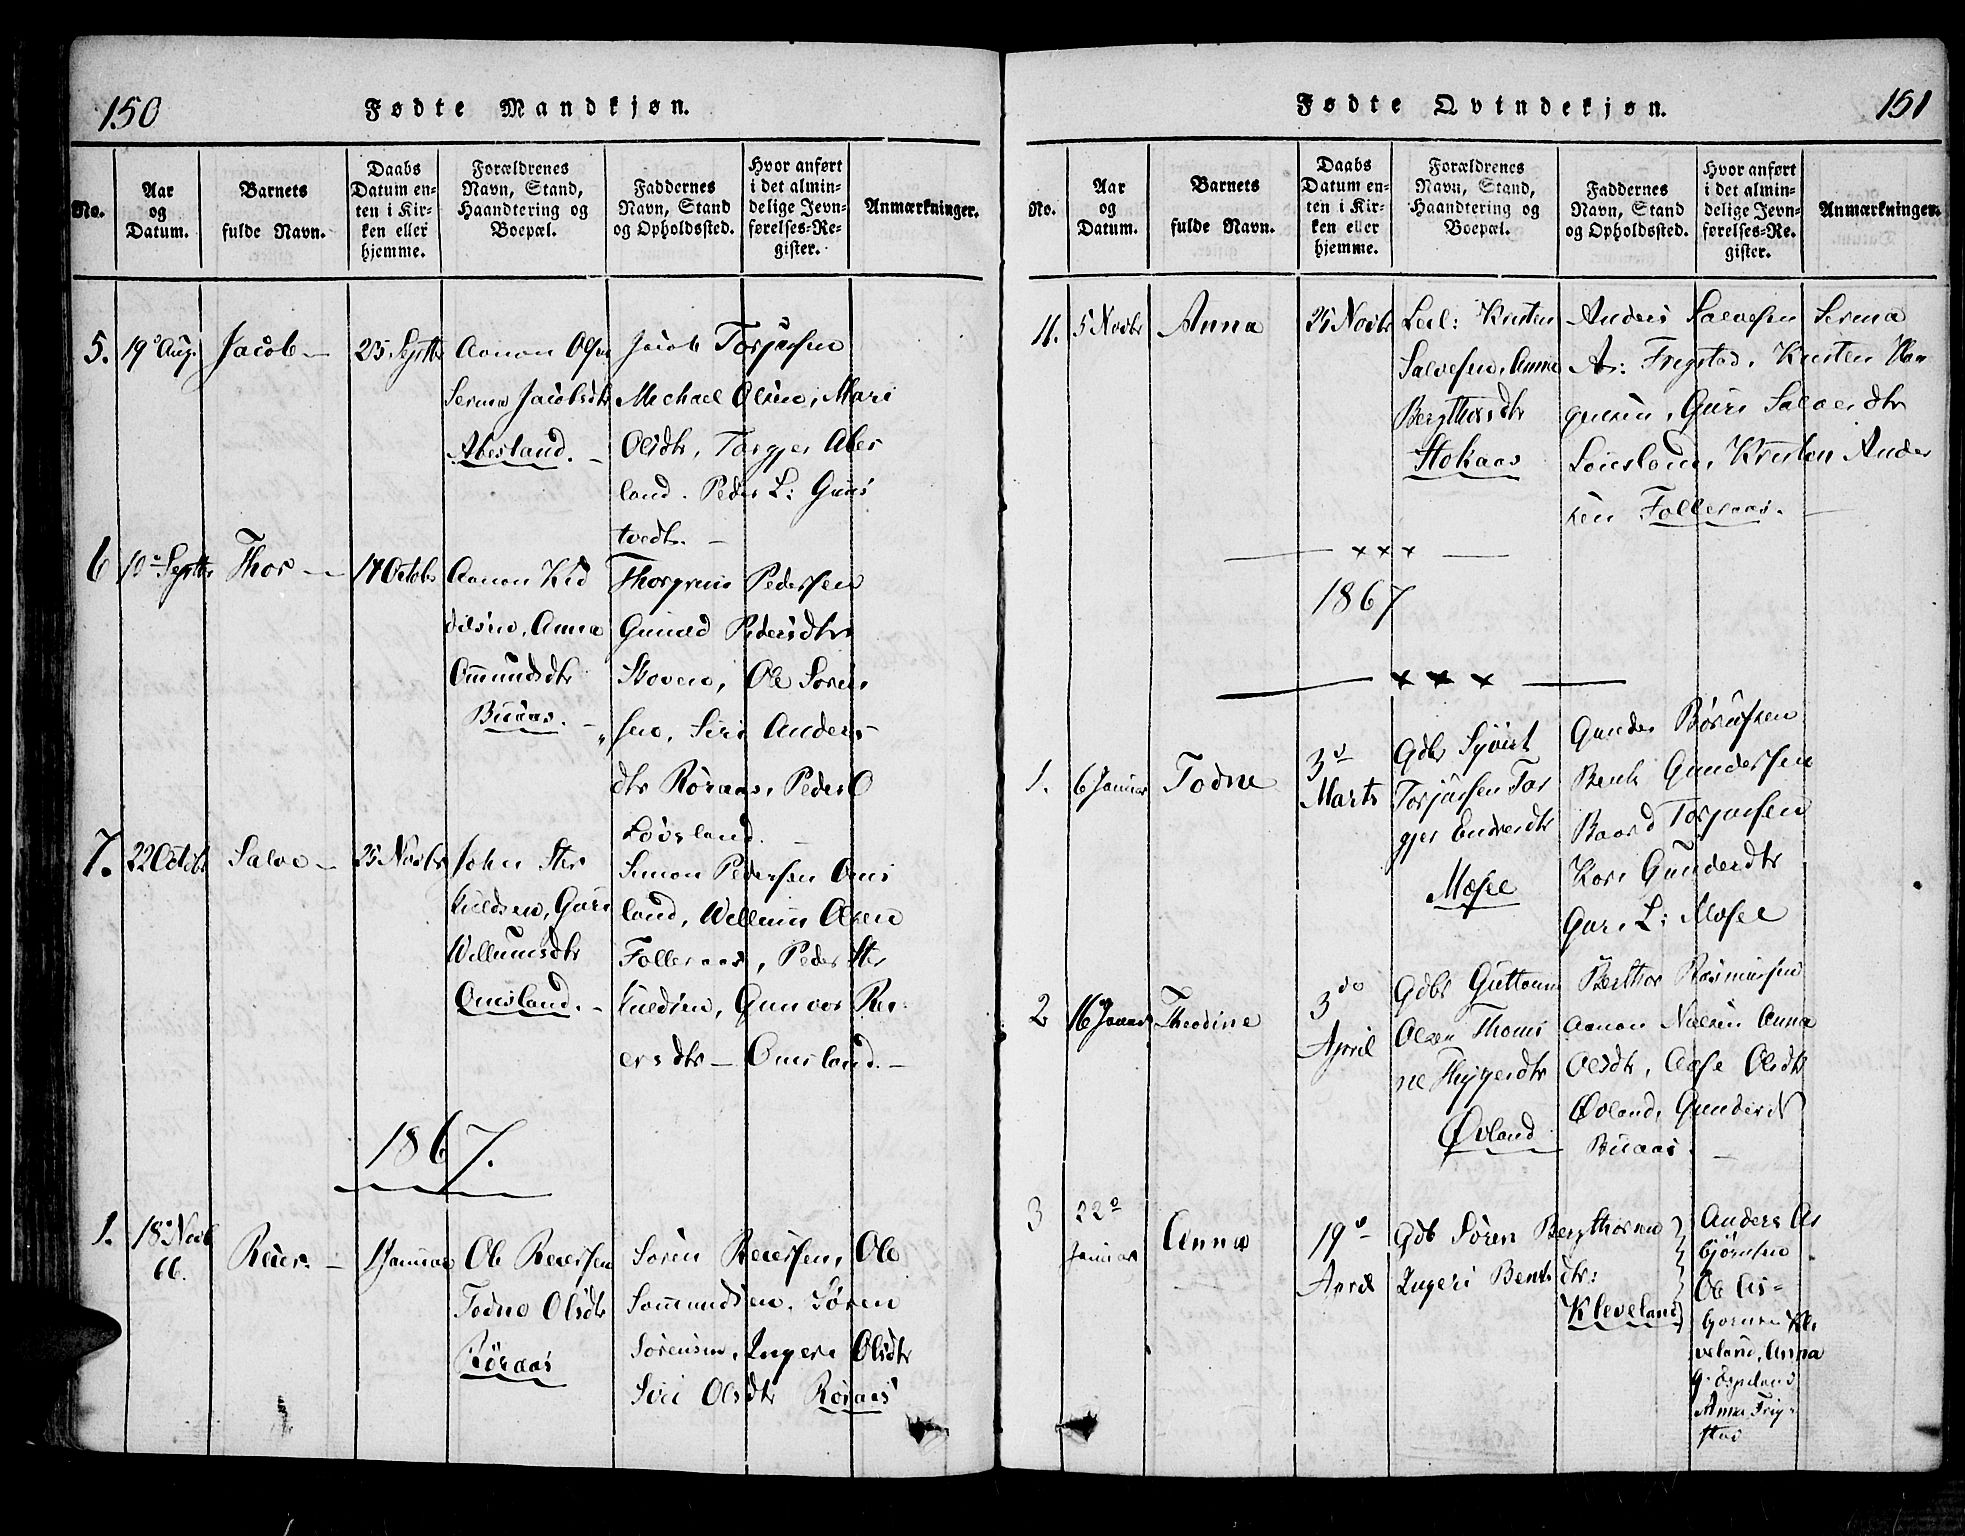 150
Fødte Mandkjøn.
No.
Aar
og
Datum.
Barnets
fulde Navn.
Daabs
Datum en-
ten i Kir-
ken eller
hjemme.
Forældrenes
Navn, Stand,
Haandtering og
Boepæl.
Faddernes
Navn, Stand
og Opholdssted.
Hvor anført
i det almin-
delige Jevn-
førelses-Re-
gister.
Anmærkninger.
5.
19de Aug.
Jacob
25 Septbr
Aanon Olsen
Serina Jacobsdtr
Abesland.
Jacob Torjusen
Michael Olsen, Mari
Olsdtr, Torgjer Abes
land. Peder L: Guns
tvedt.
6
10de Septbr
Thor
14 Octobr
Aanon Kid
dilsen, Anna
Omundsdtr
Buaas.
Thorgrim Pedersen
Gunild Pedersdtr
Skoven, Ole Søren
sen, Siri Anders
dtr Röraas, Peder O
Lövsland.
7.
22 Octobr
Salve
25 Novbr
John Ster
kuldsen, Guri
Willumsdtr
Omsland.
Simon Pedersen Oms
land, Willum Olsen
Folleraas, Peder Ster
kuldsen, Gunvor Rei
ersdtr Omsland.
1867.
1.
18de Novb
66.
Reier
1 Januar
Ole Reiersen
Todne Olsdtr
Röraas
Sören Reiersen, Ole
Sommundsen, Sören
Sörensen, Ingeri Olsdtr
Siri Olsdtr Röraas
151
Fødte Qvindekjøn.
No.
Aar
og
Datum.
Barnets
fulde Navn.
Daabs
Datum en-
ten i Kir-
ken eller
hjemme.
Forældrenes
Navn, Stand,
Haandtering og
Boepæl.
Faddernes
Navn, Stand
og Opholdssted.
Hvor anført
i det almin-
delige Jevn-
førelses-Re-
gister.
Anmærkninger.
11.
5 Novbr
Anna
25 Novbr
Leil: Kristen
Salvesen, Anna
Bergthorsdtr
Stokaas
Anders Salvesen Serina
As: Frigstad, Kristen Kon
gensen, Guri Salvesdtr
Lonesland, Kristen Ander
sen Folleraas.
1867
1.
6 Januar
Todne
3de
Marts
Gdbr Syvert
Torjusen Tor
gjer Endresdtr
Mosee
Gunder Börufsen
Bent Gundersen
Baard Torjusen
Kari Gundersdtr
Guri L: Mosee
2
16 Januar
Theodine
3do
April
Gdbr Guttorm
Olsen Thomi
ne Thygesdtr
Øvland
Berthor Rasmussen
Aanon Nielsen Anna
Olsdtr, Aase Olsdtr
Øvland, Gunder
Buaas
3
22de
Januar
Anna
19de
April
Gdb Sören Bergthorsen
Ingeri Bentsdtr:
Kleveland
Anders As
björnsen
Ole As-
bjornsen Kle
veland, Anna
G. Ospeland
Anna Frig-
stad